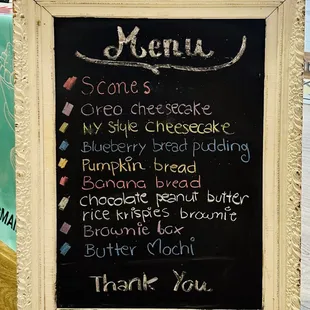 Menu
Scones
Oreo cheesecake
NY Style Cheesecake
Blueberry bread pudding
Pumpkin bread
Banana bread
chocolate peanut butter
rice krispies brownie
Brownie bax
Butter Mochi
Thank You